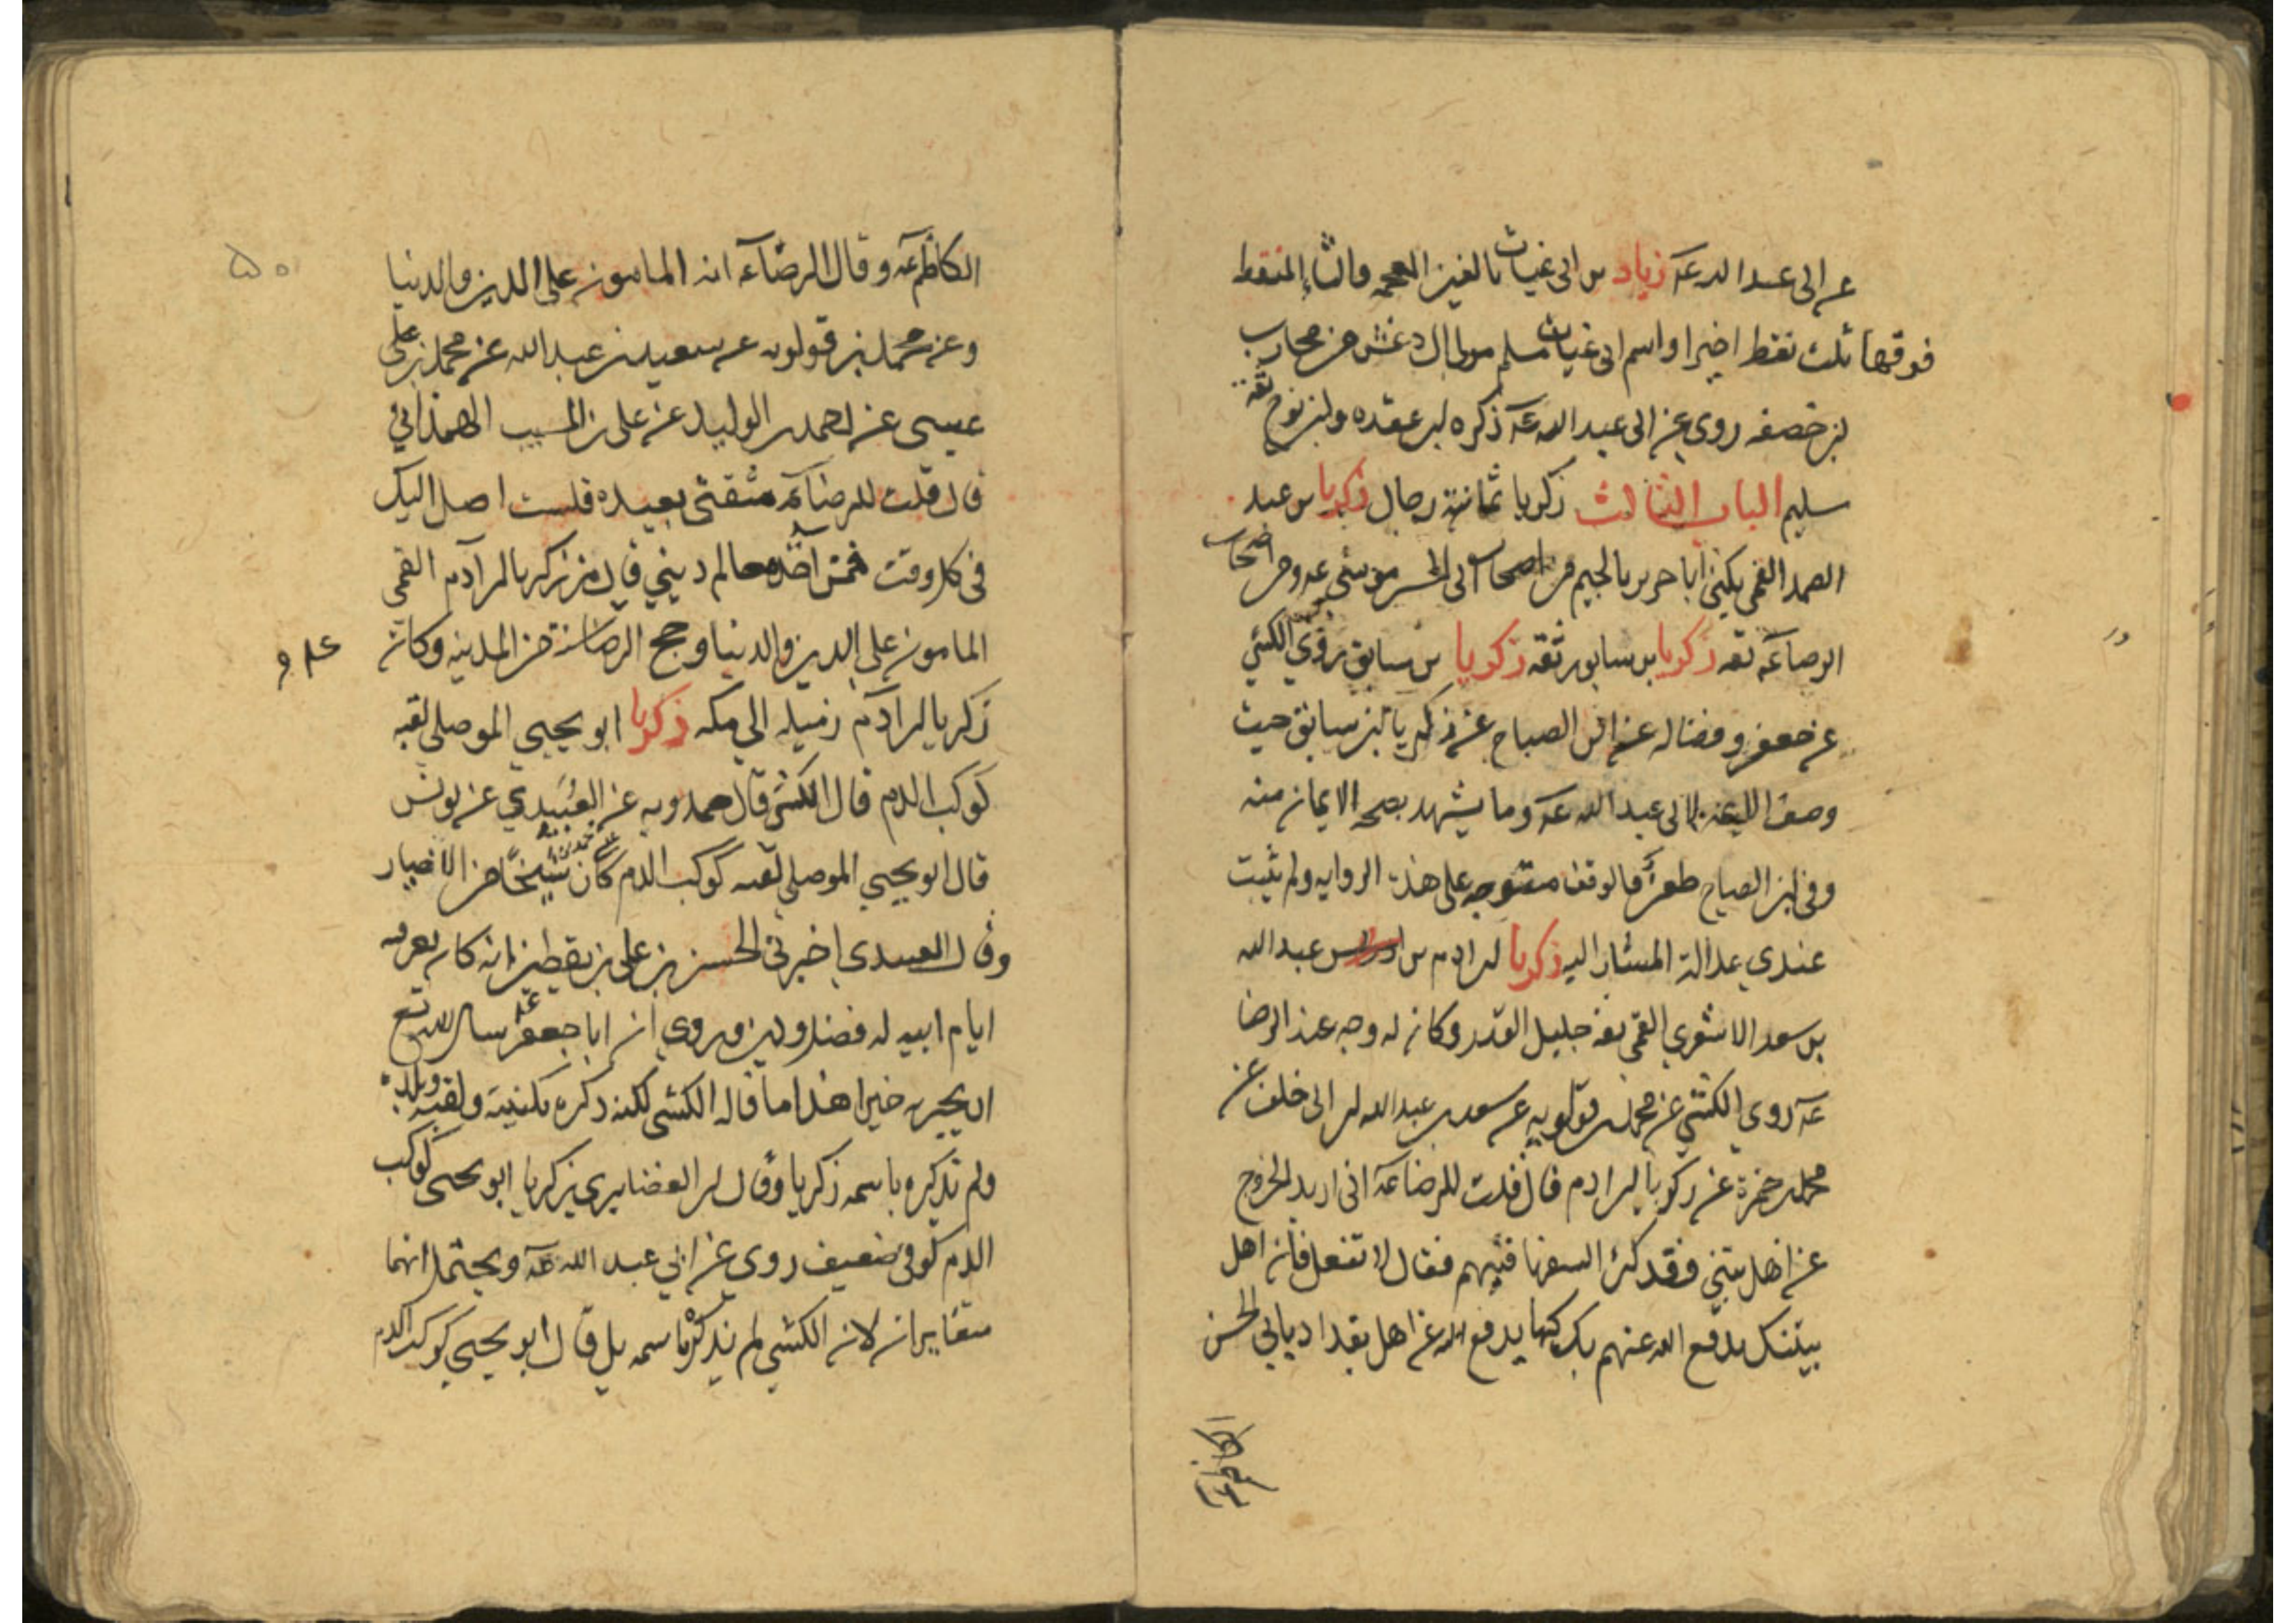 عن ابي عبد الله عه زياد بن ابي غياث بالغين المعجمه والثاء المنقط
فوقها ثلث نقط اخيرا واسم ابي غياث مسلم مولى ال دغش من محارب
بن خصفه روى عن ابي عبد الله عه ذكره ابن عقده وابن نوح ثقه
سليم الباب الثالث زكريا ثمانية رجال زكريا بن عبد
الصمد القمي يكنى ابا جرير بالجيم من اصحاب ابي الحسن موسى عه ومن اصحاب
الرضا عه ثقه زكريا بن سابور ثقه زكريا بن سابق روى الكشي
عن جعفر وفضاله عن ابن الصباح عن زكريا بن سابق حيث
وصف الائمه لابي عبد الله عه وما يشهد بصحه الايمان منه
وفي ابن الصباح طعن فالوقف متوجه على هذه الروايه ولم يثبت
عندي عدالة المشار اليه زكريا بن ادم بن عبد الله
بن سعد الاشعري القمي ثقه جليل القدر وكان له وجه عند الرضا
عه روى الكشي عن محمد بن قولويه عن سعد بن عبد الله بن ابي خلف عن
محمد بن حمزة عن زكريا بن ادم قال قلت للرضا عه اني اريد الخروج
عن اهل بيتي فقد كثر السفها فيهم فقال لا تفعل فان اهل
بيتك يدفع الله عنهم بك كما يدفع الله عن اهل بغداد بابي الحسن
الكاظم
٥٠
الكاظم عه وقال الرضا عه انه المامون على الدين والدنيا
وعن محمد بن قولويه عن سعيد بن عبد الله عن محمد بن
عيسى عن احمد بن الوليد عن علي بن المسيب الهمذاني
قال قلت للرضا عه شقتي بعيده فلست اصل اليك
في كل وقت فممن آخذ معالم ديني قال من زكريا بن آدم القمي
المامون على الدين والدنيا وحج الرضا سنة من المدينه وكان
زكريا بن آدم زميله الى مكه زكريا ابو يحيى الموصلي لقبه
كوكب الدم قال الكشي قال حمدويه عن العبيدي عن يونس
قال ابو يحيى الموصلي لقبه كوكب الدم كان شيخا من الاخيار
وقال العبيدي اخبرني الحسن بن علي بن يقطين انه كان يعرفه
ايام ابيه له فضل ودين وروي ان ابا جعفر عه سال الله تع
ان يجزيه خيرا هذا ما قاله الكشي لكنه ذكره بكنيته ولقبه وبلده
ولم تذكره باسمه زكريا وقال ابن الغضايري زكريا ابو يحيى كوكب
الدم كوفي ضعيف روى عن ابي عبد الله عه ويحتمل انهما
متغايران لان الكشي لم يذكره باسمه بل قال ابو يحيى كوكب الدم